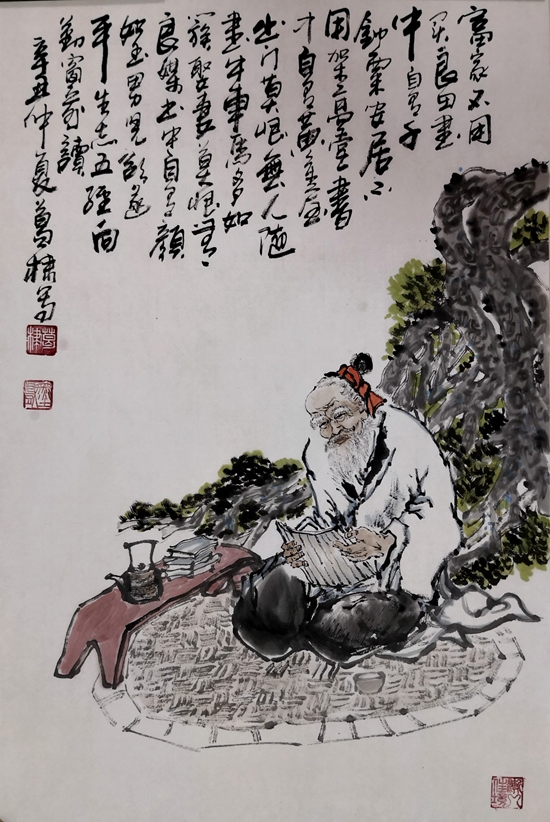 富家不用
买良田書
中自有千
鈡粟安居不
用架高堂書
中自有黄金屋
出门莫恨無人随
書中車馬多如
簇娶妻莫恨無
良媒书中自有颜
如玉男兒欲遂
平生志五经向
勤窗前讀
辛丑仲夏葛棣写
葛棣